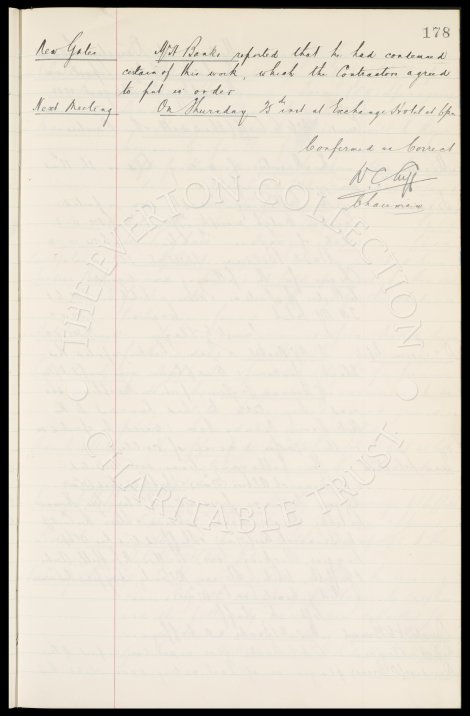 178
New Gates Mr Banks reported that he had condemned
certain of this work, which the Contractors agreed
to put in order
Next Meeting On Thursday inst at Exchange Hotel at 6pm
Confirmed as Correct
W. C. Cuff
Chairman
THE EVERTON COLLECTION
CHARITABLE TRUST